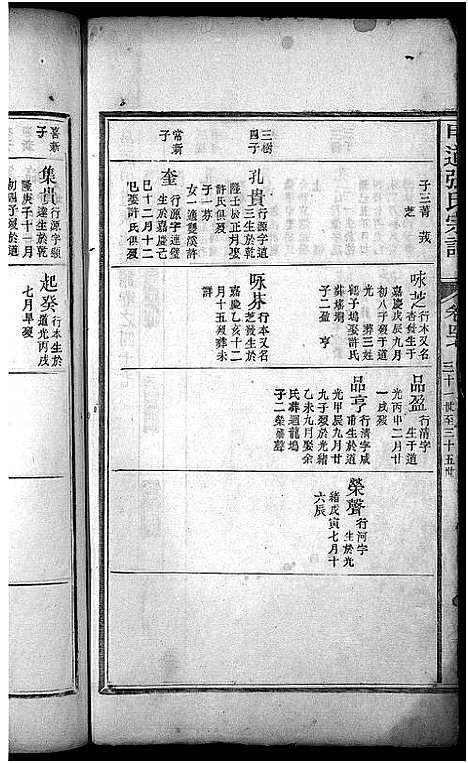 張氏宗譜
卷四七
三十一世至三十五世
子三菁莪
芝
咏芝
行本又名
杏芝生于
嘉慶戊辰九月
初八子歿于道
光 葬三姓
郎子塢娶許氏
子二盈亨
品盈
行清字
生于道
光丙申二月廿
一戌歿
三樹
四子
孔貴
行源字道
三生於乾
隆壬辰正月娶
許氏俱歿
子一芬
女一適雙溪許
咏芬
行本又名
芝發生於
嘉慶乙亥十二
月十五歿葬未
詳
品亨
行清字咸
甫生於道
光甲辰九月廿
九子歿於光緒
乙未九月娶余
氏葬迴龍塢
子二榮聲
榮聲
行河字
生於光
緒戊寅七月十
六辰
常新
子
奎
行源字連璧
生於嘉慶己
巳十二月十二
巳娶許氏俱歿
喜新
子
集貴
行源字順
達生於乾
隆庚子十一月
初四子歿於道
起癸
行本生於
道光丙戌
七月早歿